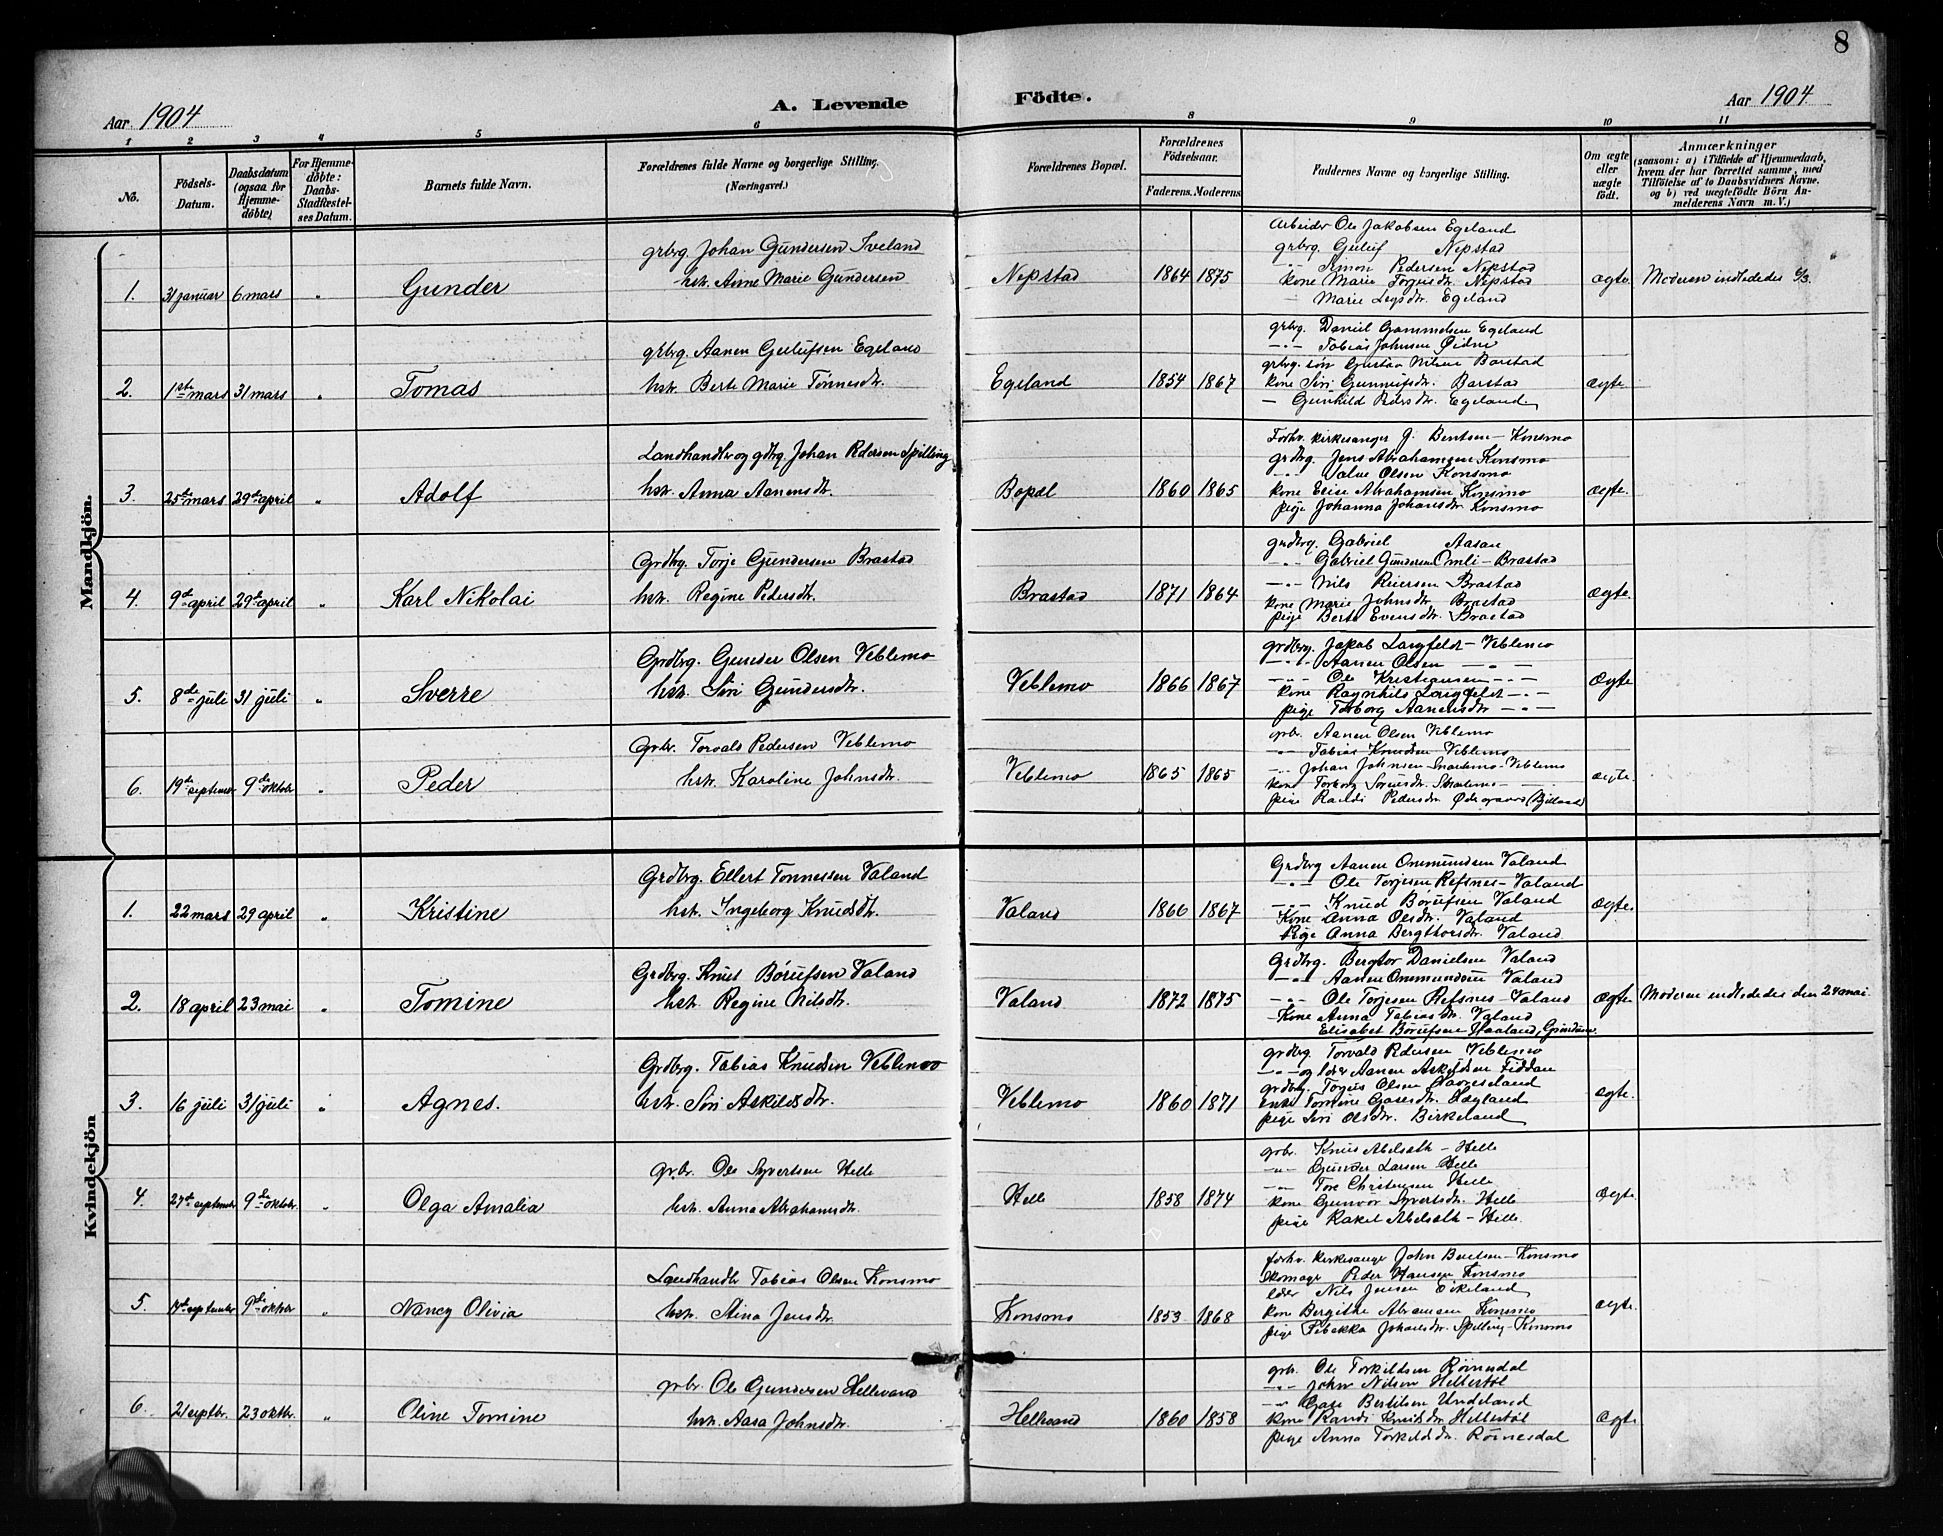 8
Aar 1904
A. Levende
Födte.
Aar 1904.
1 2 3 4 5 6 8 9 10 11
No.
Födsels-Datum.
Daabsdatum (ogsaa for Hjemmedöbte)
For Hjemmedöbte: Daabs-Stadfæstelses Datum.
Barnets fulde Navn.
Forældrenes fulde Navne og borgerlige Stilling.
(Næringsvei.)
Forældrenes Bopæl.
Forældrenes Födselsaar.
Faderens. Moderens.
Faddernes Navne og borgerlige Stilling.
Om ægte eller uægte födt.
Anmærkninger
(saasom: a) i Tilfælde af Hjemmedaab, hvem der har forrettet samme, med Tilföielse af to Daabsvidners Navne. og b) ved uægtefödte Börn Anmelderens Navn m. V.)
Mandkjön.
1. 31 januar 6 mars " Gunder
grbrg. Johan Gundersen Iveland
hstr. Anne Marie Gundersen
Nepstad 1864 1875
Arbeider Ole Jakobsen Egeland
grbrg. Geiluf Nepstad
-"- Simon Pedersen Nepstad
kone Marie Torgusdtr. Nepstad
- Marie Leysdtr. Egeland
ægte. Moderen indlededes 6/3.
2. 1ste mars 31 mars " Tomas
grbrg. Aanen Geilufsen Egeland
hstr. Berte Marie Tönnesdtr.
Egeland 1854 1867
grbrg. Daniel Gammelsen Egeland
-"- Tobias Johnsen Öidne
grbrg. sön Gustav Nilsen Barstad
kone Siri Gunneufsdtr. Barstad
- Gunhild Pedersdtr. Egeland.
ægte.
3. 25de mars 29de april " Adolf
Landhandler og gdbrg. Johan Pedersen Spilling
hstr. Anna Aanensdtr.
Bopæl 1860 1865
Forhv. kirkesanger J. Bentsen - Konsmo
grdbrg. Jens Abrahamsen Konsmo
-"- Value Olsen Konsmo
kone Elise Abrahamsen Konsmo
pige Johanna Johansdtr Konsmo
ægte.
4. 9de april 29de april " Karl Nikolai
Grdbrg. Torje Gundersen Brastad
hstr. Regine Pedersdtr.
Brastad 1871 1864
grdbrg. Gabriel Aasan
-"- Gabriel Gundersen Omli - Brastad
-"- Nils Reiersen Brastad
kone Marie Johnsdtr. Brastad
pige Berte Evensdtr. Brastad
ægte.
5. 8de juli 31 juli " Sverre
Grdbrg. Gunder Olsen Veblemo
hstr. Siri Gundersdtr.
Veblemo 1866 1867
grdbrg. Jakob Langfeldt - Veblemo
-"- Aanen Olsen -"-
-"- Ole Kristiansen -"-
kone Ragnhild Langfeldt -"-
pige Torborg Aanensdtr -"-
Ægte
6. 19de september 9de oktober " Peder
Grbr. Torvald Pedersen Veblemo
hstr. Karoline Johnsdtr.
Veblemo 1865 1865
grbr. Aanen Olsen Veblemo
-"- Tobias Knudsen Veblemo
-"- Johan Johnsen Snartemo - Veblemo
kone Torborg Sorensdtr.
pige Randi Pedersdtr Ödegaard (Bjelland)
ægte.
Kvindekjön
1. 22 mars 29 april " Kristine
Grdbrg. Ellert Tönnessen Valand
hstr. Ingeborg Knudsdtr.
Valand 1866 1867
Grdbrg Aanen Onmundsen Valand
-"- Ole Torjesen Refsnes - Valand
-"- Knud Börufsen Valand
Kone Anna Olsdtr. Valand
Pige Anna Bergthorsdtr. Valand.
Ægte.
2. 18 april 23 mai " Tomine
Grdbrg. Knut Börufsen Valand
hstr. Regine Nilsdtr.
Valand 1872 1875
Grdbrg. Bergtor Danielsen Valand
-"- Aanen Onmundsen Valand
-"- Ole Torjesen Refsnes - Valand
Kone Anna Tobiasdtr. Valand
Elisabet Börufsen Haaland, Grindum
Ægte. Moderen indlededes den 24 mai.
3. 16 juli 31 juli " Agnes.
Grdbrg. Tobias Knudsen Veblemo
hstr. Siri Askildsdtr.
Veblemo 1860 1871
grdbrg. Torvald Pedersen Veblemo
-"- og lder Aanen Askildsen Fiddan
grdbrg. Torjus Olsen
enke Tomine Gasesdtr. Hægland
pige Siri Olsdtr. Birkeland
ægte.
4. 27de september 9de oktober. " Olga Amalia
grbr. Ole Syvertsen Helle
hstr. Anna Abrahamsdtr.
Helle 1858 1874
grbr. Knud Abelseth - Helle
-"- Gunder Larsen Helle
-"- Tore Christensen Helle
kone Gunvor Syvertsdtr. Helle
pige Rakel Abelseth - Helle.
Ægte.
5. september 9de oktbr " Nancy Olivia
Landhandler Tobias Olsen Konsmo
hstr. Stina Jensdtr.
Konsmo 1853 1868
forhv. kirkesanger John Bentsen - Konsmo
skomager Peder Hansen Konsmo
lder Nils Jensen Eikeland
kone Bergithe Abramsen Konsmo
pige Rebekka Johansdtr. Spilling - Konsmo
ægte.
6. 21 septbr. 23 oktbr. " Oline Tomine
grbr. Ole Gundersen Hellevand
hstr. Aasa Johnsdtr.
Hellvand 1860 1858
grbr. Ole Torkildsen Röinesdal
-"- John Nilsen Hellestöl
-"- Gase Bertilsen Undeland
kone Randi Knudsdtr Hellestöl
pige Anna Torkildsdtr. Röinesdal
Ægte.